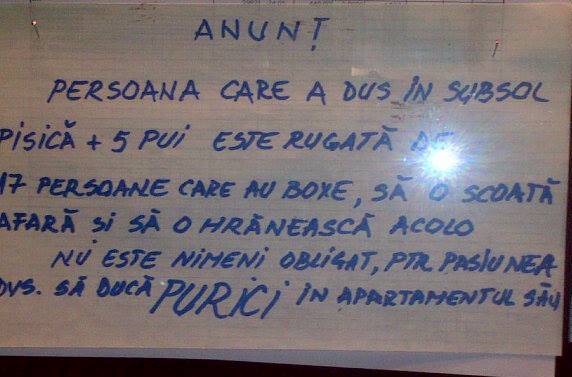 ANUNȚ
PERSOANA CARE A DUS ÎN SUBSOL
PISICĂ + 5 PUI ESTE RUGATĂ DE
17 PERSOANE CARE AU BOXE, SĂ O SCOATĂ
AFARĂ SI SĂ O HRĂNEASCĂ ACOLO
NU ESTE NIMENI OBLIGAT, PTR. PASIUNEA
DVS. SĂ DUCĂ PURICI ÎN APARTAMENTUL SĂU